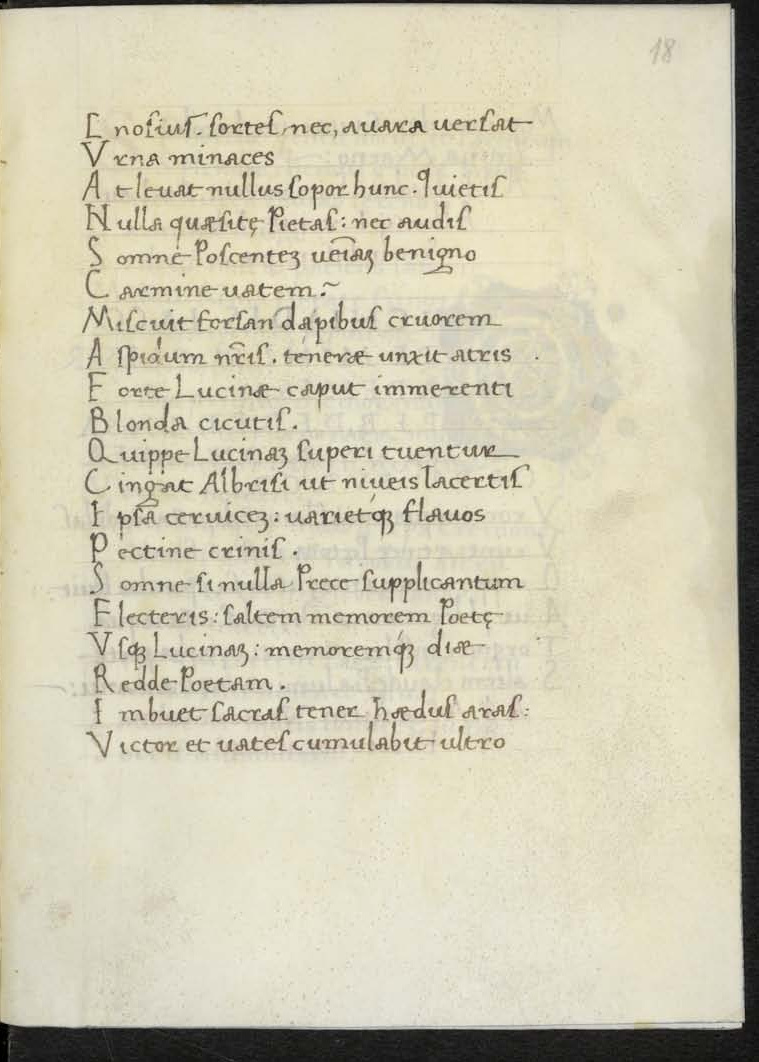 18
E noſiuſ. ſorteſ, nec, auara uerſat
V rna minaces
A t leuat nullus ſopor hunc. Quietiſ
N ulla quæſitę Pietaſ: nec audiſ
S omne Poſcenteꝫ benigno
C armine uatem.
M iſcuit forſan dapibuſ cruorem
A ſpidum nr̄is. teneræ unxit atris
F orte Lucinæ caput immerenti
B londa cicutiſ.
Q uippe Lucinaꝫ ſuperi tuentur
C ingat Albriſi ut niueis lacertiſ
I pſa ceruiceꝫ: uarietqꝫ flauos
P ectine criniſ.
S omne ſi nulla Prece ſupplicantum
F lecteris: ſaltem memorem Poetę
V ſqꝫ Lucinaꝫ: memoremqꝫ diæ
R edde Poetam.
I mbuet ſacraſ tener hæduſ araſ:
V ictor et uateſ cumulabit ultro